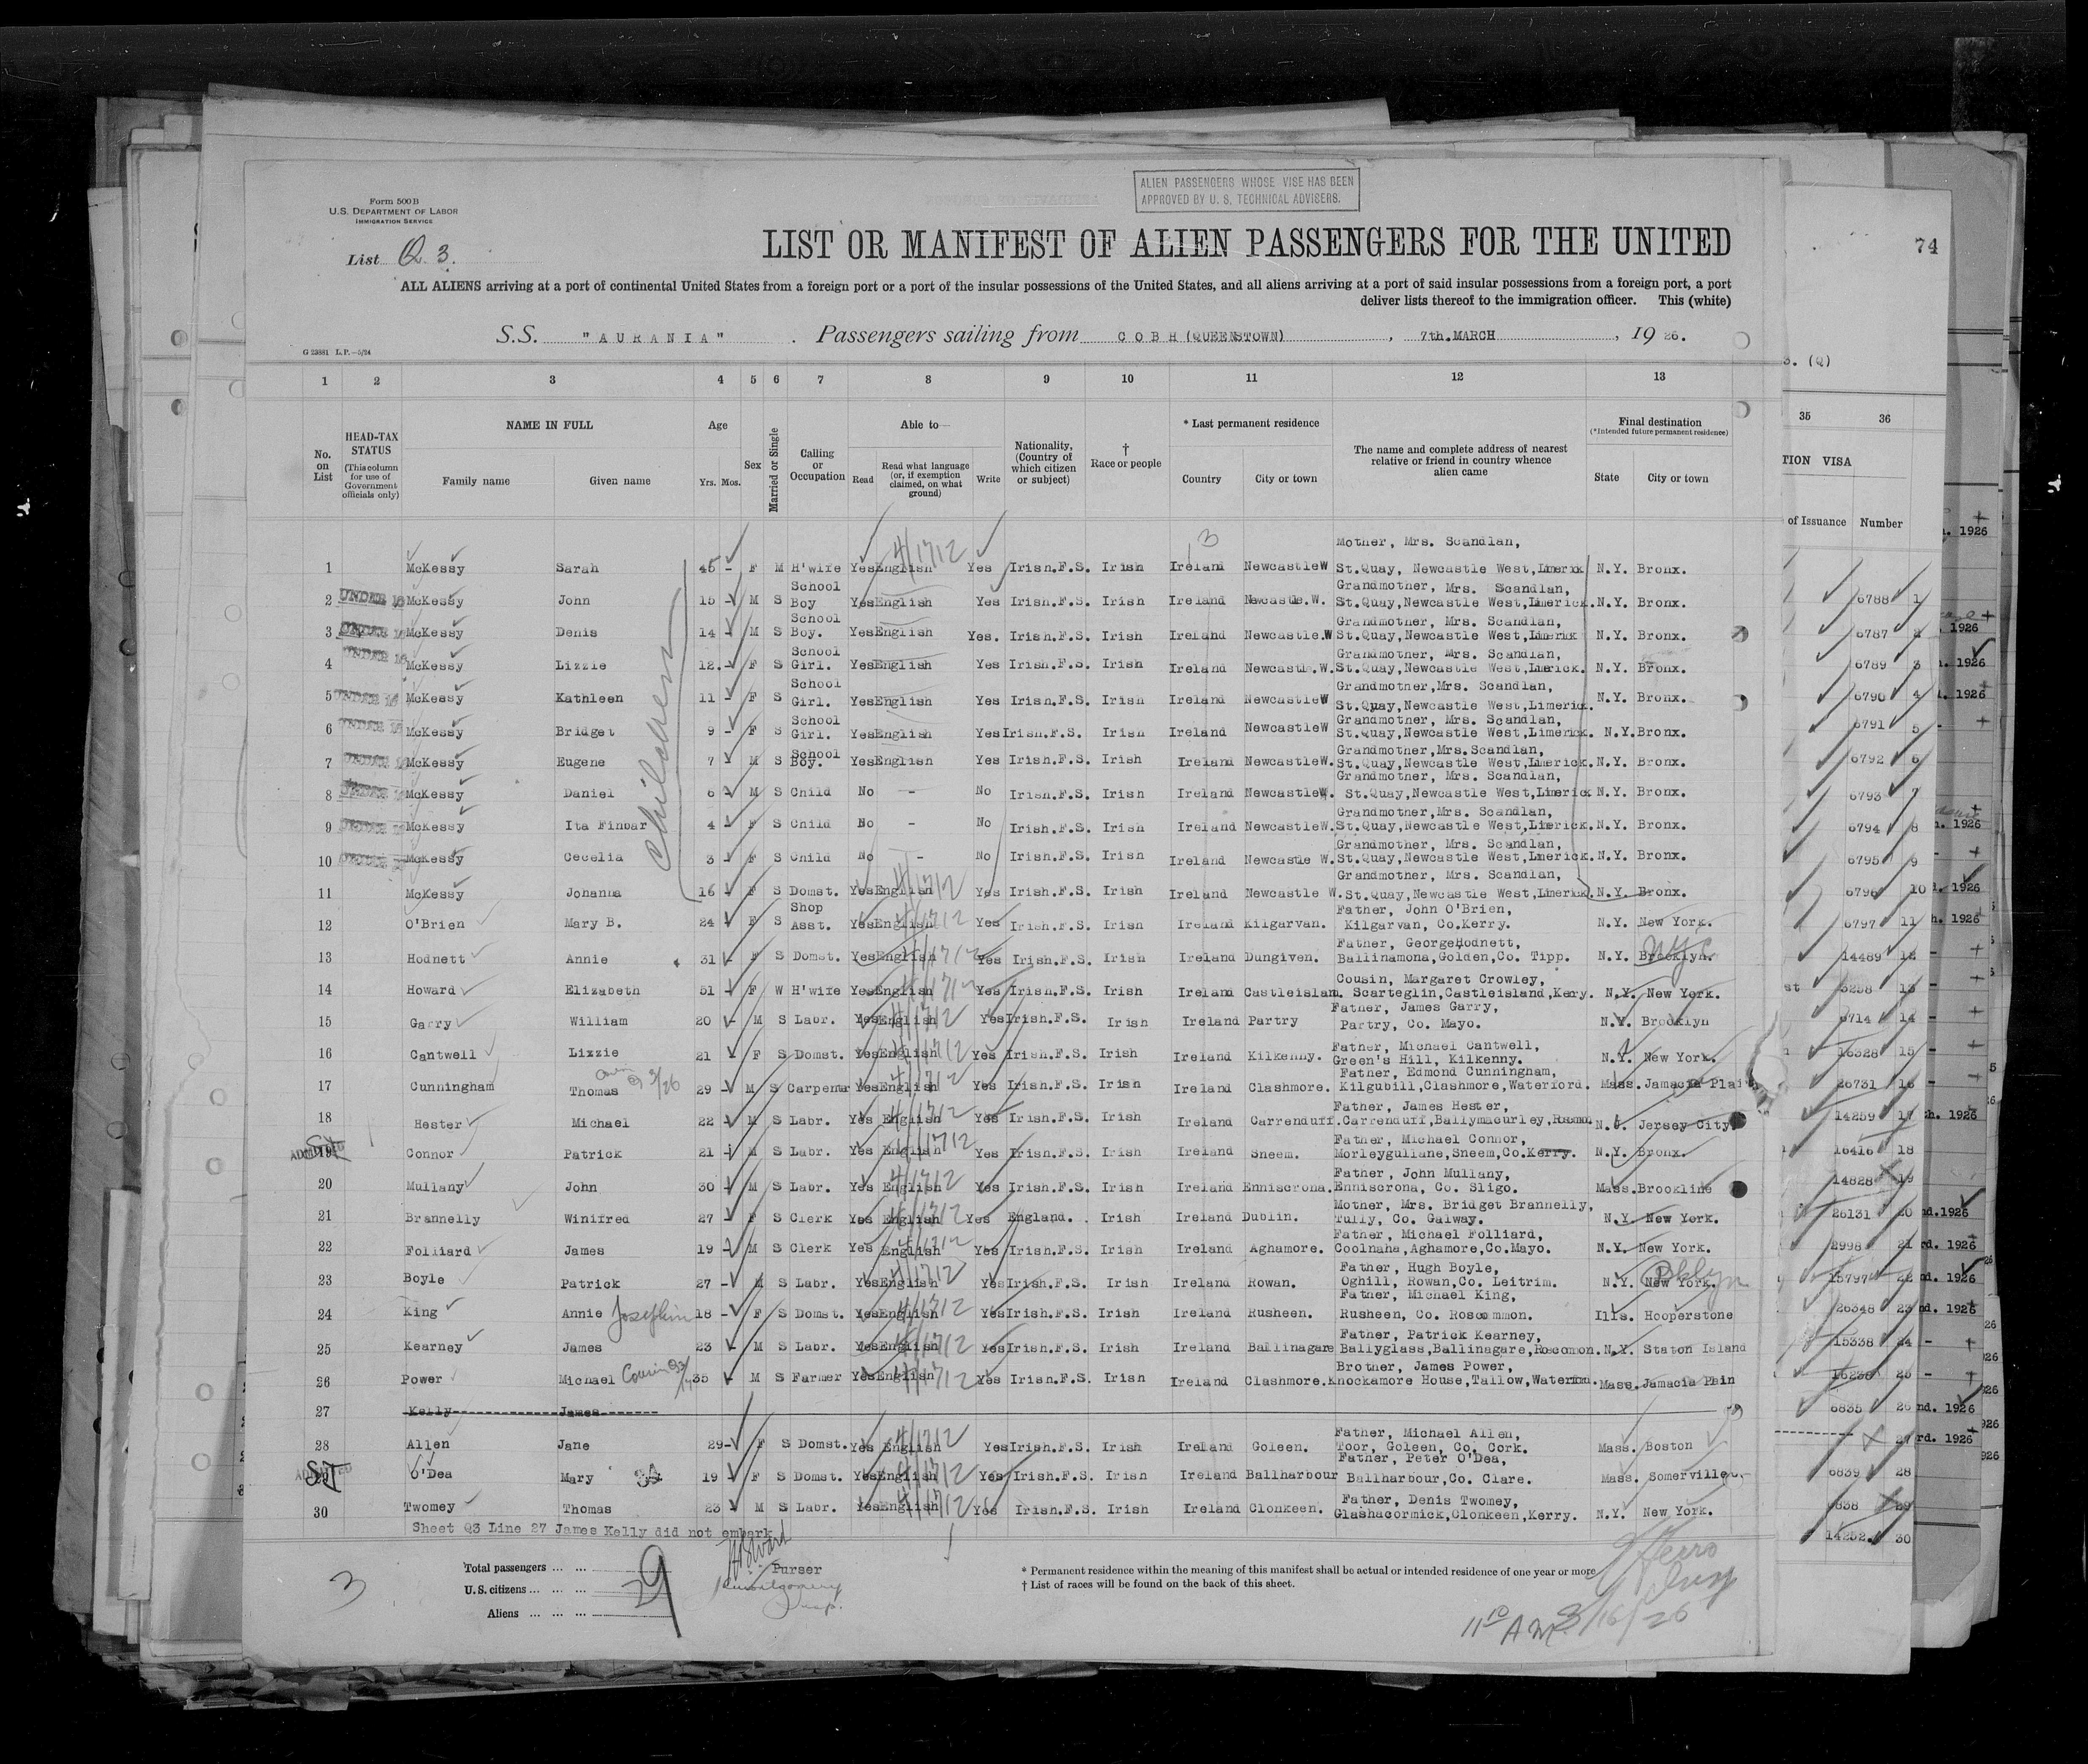 ALIEN PASSENGERS WHOSE VISE HAS BEEN
APPROVED BY U. S. TECHNICAL ADVISERS.
Form 500 B
U.S. DEPARTMENT OF LABOR
IMMIGRATION SERVICE
List Q 3.
LIST OR MANIFEST OF ALIEN PASSENGERS FOR THE UNITED
74
ALL ALIENS arriving at a port of continental United States from a foreign port or a port of the insular possessions of the United States, and all aliens arriving at a port of said insular possessions from a foreign port, a port
deliver lists thereof to the immigration officer. This (white)
S.S. "AURANIA". Passengers sailing from COBH (QUEENSTOWN), 7th.MARCH, 1926.
G 23881 L.P.—5/24
(Q)
1 2 3 4 5 6 7 8 9 10 11 12 13 35 36
No. on List
HEAD-TAX STATUS
(This column for use of Government officials only)
NAME IN FULL
Family name Given name
Age
Yrs. Mos.
Sex
Married or Single
Calling or Occupation
Able to—
Read
Read what language (or, if exemption claimed, on what ground)
Write
Nationality, (Country of which citizen or subject)
† Race or people
* Last permanent residence
Country City or town
The name and complete address of nearest relative or friend in country whence alien came
Final destination
(*Intended future permanent residence)
State City or town
TION VISA
of Issuance Number
Children
Mother, Mrs. Scandlan,
1 McKessy Sarah 45 - F M H'wife Yes English Yes Irish.F.S. Irish Ireland NewcastleW St.Quay, Newcastle West,Limerick N.Y. Bronx.
School Grandmother, Mrs. Scandlan,
2 UNDER 16 McKessy John 15 - M S Boy Yes English Yes Irish.F.S. Irish Ireland Newcastle.W. St.Quay,Newcastle West,Limerick. N.Y. Bronx. 6788 1
School Grandmother, Mrs. Scandlan,
3 UNDER 16 McKessy Denis 14 - M S Boy. Yes English Yes. Irish.F.S. Irish Ireland Newcastle.W St.Quay,Newcastle West,Limerick N.Y. Bronx. 6787 2
School Grandmother, Mrs. Scandlan,
4 UNDER 16 McKessy Lizzie 12. - F S Girl. Yes English Yes Irish.F.S. Irish Ireland Newcastle.W. St.Quay,Newcastle West,Limerick. N.Y. Bronx. 6789 3
School Grandmother,Mrs. Scandlan,
5 UNDER 16 McKessy Kathleen 11 - F S Girl. Yes English Yes Irish.F.S. Irish Ireland NewcastleW St.Quay,Newcastle West,Limerick. N.Y. Bronx. 6790 4
School Grandmother, Mrs. Scandlan,
6 UNDER 16 McKessy Bridget 9 - F S Girl. Yes English Yes Irish.F.S. Irish Ireland NewcastleW St.Quay,Newcastle West,Limerick. N.Y. Bronx. 6791 5
School Grandmother,Mrs.Scandlan,
7 UNDER 16 McKessy Eugene 7 - M S Boy. Yes English Yes Irish.F.S. Irish Ireland NewcastleW. St.Quay,Newcastle West,Limerick N.Y. Bronx. 6792 6
Grandmother, Mrs. Scandlan,
8 UNDER 16 McKessy Daniel 6 M S Child No - No Irish.F.S. Irish Ireland NewcastleW. St.Quay,Newcastle West,Limerick N.Y. Bronx. 6793 7
Grandmother,Mrs. Scandlan,
9 UNDER 16 McKessy Ita Finbar 4 - F S Child No - No Irish.F.S. Irish Ireland NewcastleW. St.Quay,Newcastle West,Limerick. N.Y. Bronx. 6794 8
Grandmother, Mrs. Scandlan,
10 UNDER 16 McKessy Cecelia 3 F S Child No - No Irish.F.S. Irish Ireland Newcastle W. St.Quay,Newcastle West,Limerick. N.Y. Bronx. 6795 9
Grandmother, Mrs. Scandlan,
11 McKessy Johanna 16 - F S Domst. Yes English Yes Irish.F.S. Irish Ireland Newcastle W. St.Quay,Newcastle West,Limerick N.Y. Bronx. 6796 10
Shop Father, John O'Brien,
12 O'Brien Mary B. 24 - F S Asst. Yes English Yes Irish.F.S. Irish Ireland Kilgarvan. Kilgarvan, Co.Kerry. N.Y. New York. 6797 11
Father, GeorgeHodnett,
13 Hodnett Annie 31 - F S Domst. Yes English Yes Irish.F.S. Irish Ireland Dungiven. Ballinamona,Golden,Co. Tipp. N.Y. Brooklyn. NYC 14489 12
Cousin, Margaret Crowley,
14 Howard Elizabeth 51 - F W H'wife Yes English Yes Irish.F.S. Irish Ireland Castleisland. Scarteglin,Castleisland,Kerry. N.Y. New York. 3258 13
Father, James Garry,
15 Garry William 20 - M S Labr. Yes English Yes Irish.F.S. Irish Ireland Partry Partry, Co. Mayo. N.Y. Brooklyn 6714 14
Father, Michael Cantwell,
16 Cantwell Lizzie 21 - F S Domst. Yes English Yes Irish.F.S. Irish Ireland Kilkenny. Green's Hill, Kilkenny. N.Y. New York. 16328 15
Father, Edmond Cunningham,
17 Cunningham Thomas 29 - M S Carpenter Yes English Yes Irish.F.S. Irish Ireland Clashmore. Kilgubill,Clashmore,Waterford. Mass. Jamacia Plai 26731 16
Father, James Hester,
18 Hester Michael 22 - M S Labr. Yes English Yes Irish.F.S. Irish Ireland Carrenduff. Carrenduff,Ballymacurley,Roscom. N.J. Jersey City. 14259 17
Father, Michael Connor,
ADMITTED 19 Connor Patrick 21 - M S Labr. Yes English Yes Irish.F.S. Irish Ireland Sneem. Morleygullane,Sneem,Co.Kerry. N.Y. Bronx. 16416 18
Father, John Mullany,
20 Mullany John 30 - M S Labr. Yes English Yes Irish.F.S. Irish Ireland Enniscrona. Enniscrona, Co. Sligo. Mass. Brookline 14828 19
Mother, Mrs. Bridget Brannelly,
21 Brannelly Winifred 27 - F S Clerk Yes English Yes England. Irish Ireland Dublin. Tully, Co. Galway. N.Y. New York. 26131 20
Father, Michael Folliard,
22 Folliard James 19 - M S Clerk Yes English Yes Irish.F.S. Irish Ireland Aghamore. Coolnaha,Aghamore,Co.Mayo. N.Y. New York. 2998 21
Father, Hugh Boyle,
23 Boyle Patrick 27 - M S Labr. Yes English Yes Irish.F.S. Irish Ireland Rowan. Oghill, Rowan,Co. Leitrim. N.Y. New York. Bklyn 15797 22
Father, Michael King,
24 King Annie Josephin 18 - F S Domst. Yes English Yes Irish.F.S. Irish Ireland Rusheen. Rusheen, Co. Roscommon. Ills. Hooperstone 26348 23
Father, Patrick Kearney,
25 Kearney James 23 - M S Labr. Yes English Yes Irish.F.S. Irish Ireland Ballinagare Ballyglass,Ballinagare,Roscomon. N.Y. Staton Island 15338 24
Brother, James Power,
26 Power Michael Cousin 35 M S Farmer Yes English Yes Irish.F.S. Irish Ireland Clashmore. Knockamore House,Tallow,Waterford. Mass. Jamacia Plain 16236 25
27 Kelly James 6835 26
Father, Michael Allen,
28 Allen Jane 29- F S Domst. Yes English Yes Irish.F.S. Irish Ireland Goleen. Toor, Goleen, Co. Cork. Mass. Boston 27
Father, Peter O'Dea,
ADMITTED SI O'Dea Mary 19 F S Domst. Yes English Yes Irish.F.S. Irish Ireland Ballharbour Ballharbour,Co. Clare. Mass. Somerville 6839 28
Father, Denis Twomey,
30 Twomey Thomas 23 - M S Labr. Yes English Yes Irish.F.S. Irish Ireland Clonkeen. Glashacormick,Clonkeen,Kerry. N.Y. New York. 6838 29
Sheet Q3 Line 27 James Kelly did not embark
14252. 30
Total passengers ... ...
U.S. citizens ... ... ...
Aliens ... ... ...
29
3
Purser
* Permanent residence within the meaning of this manifest shall be actual or intended residence of one year or more
† List of races will be found on the back of this sheet.
3/16/26